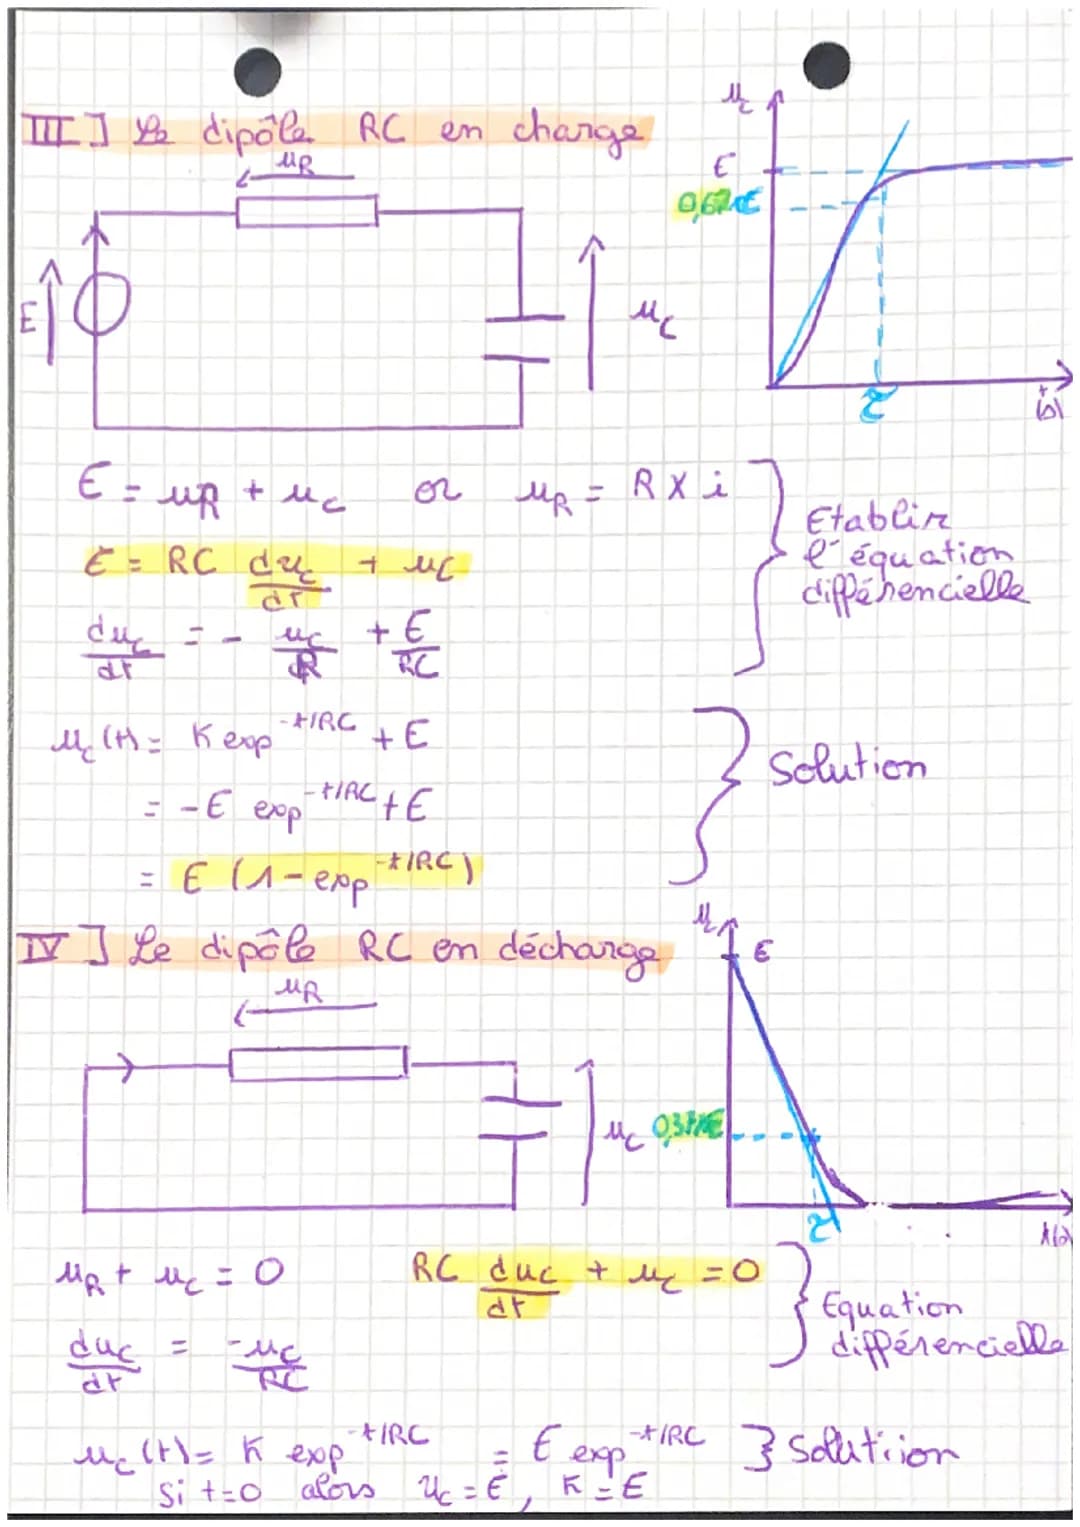 III] Le dipôle RC en charge
uR
uc
E
0,62xE
τ
t(s)
E
uc
E = uR + uc or uR = R x i
E = RC duc/dt + uc
duc/dt = - uc/R + E/RC
Etablir l'équation différencielle
uc(t) = K exp^-t/RC + E
= -E exp^-t/RC + E
= E (1 - exp^-t/RC)
Solution
IV] Le dipôle RC en décharge
uR
uc
uc
E
0,37xE
τ
t(s)
uR + uc = 0 RC duc/dt + uc = 0
duc/dt = -uc/RC
Equation différencielle
uc(t) = K exp^-t/RC = E exp^-t/RC } Solutiion
Si t=0 alors uc = E, K = E